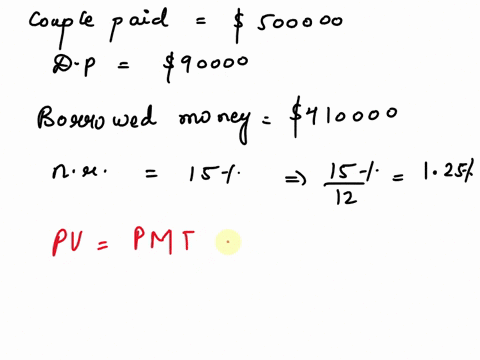 Couple paid = $ 500000
D.p = $90000
Borrowed money = $410000
n.r. = 15% ⇒ 15%/12 = 1.25%
PV = PMT